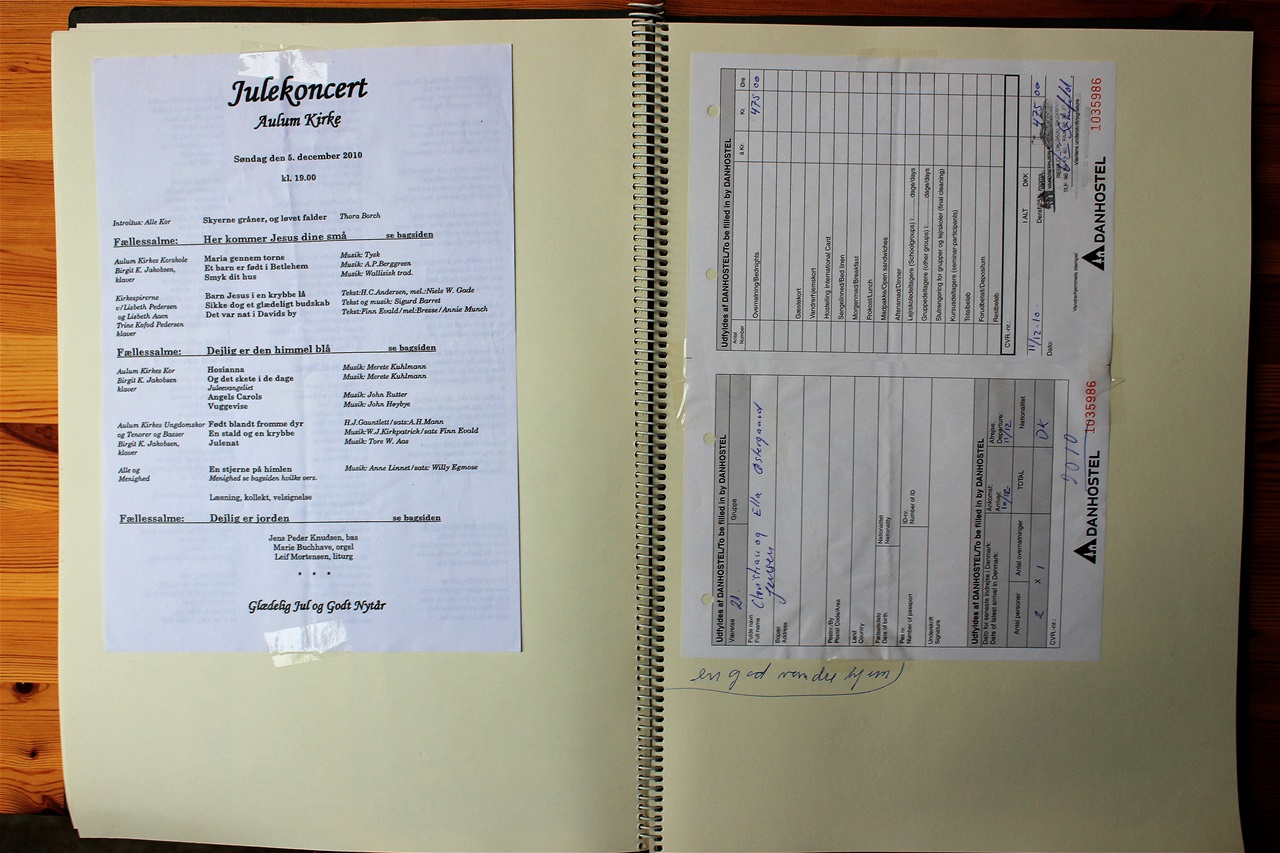 Julekoncert
Aulum Kirke
Søndag den 5. december 2010
kl. 19.00
Introitus: Alle Kor Skyerne gråner, og løvet falder Thora Borch
Fællessalme: Her kommer Jesus dine små se bagsiden
Aulum Kirkes Korskole Maria gennem torne Musik: Tysk
Birgit K. Jakobsen, Et barn er født i Betlehem Musik: A.P.Berggreen
klaver Smyk dit hus Musik: Wallisisk trad.
Kirkespirerne Barn Jesus i en krybbe lå Tekst:H.C.Andersen, mel.:Niels W. Gade
v/Lisbeth Pedersen Sikke dog et glædeligt budskab Tekst og musik: Sigurd Barret
og Lisbeth Aaen Det var nat i Davids by Tekst:Finn Evald/mel:Bresse/Annie Munch
Trine Kofod Pedersen
klaver
Fællessalme: Dejlig er den himmel blå se bagsiden
Aulum Kirkes Kor Hosianna Musik: Merete Kuhlmann
Birgit K. Jakobsen Og det skete i de dage Musik: Merete Kuhlmann
klaver Juleevangeliet
Angels Carols Musik: John Rutter
Vuggevise Musik: John Høybye
Aulum Kirkes Ungdomskor Født blandt fromme dyr H.J.Gauntlett/sats:A.H.Mann
og Tenorer og Basser En stald og en krybbe Musik:W.J.Kirkpatrick/sats Finn Evald
Birgit K. Jakobsen, Julenat Musik: Tore W. Aas
klaver
Alle og En stjerne på himlen Musik: Anne Linnet/sats: Willy Egmose
Menighed Menighed se bagsiden hvilke vers.
Læsning, kollekt, velsignelse
Fællessalme: Dejlig er jorden se bagsiden
Jens Peder Knudsen, bas
Marie Buchhave, orgel
Leif Mortensen, liturg
* * *
Glædelig Jul og Godt Nytår
Udfyldes af DANHOSTEL/To be filled in by DANHOSTEL
Værelse 21 Gruppe
Fulde navn
Full name Christian og Ella Østergaard
Jensen
Bopæl
Address
Postnr./By
Postal Code/Area
Land
Country
Fødselsdato
Date of birth
Nationalitet
Nationality
Pas nr.
Number of passport
ID-nr.
Number of ID
Underskrift
Signature
Udfyldes af DANHOSTEL/To be filled in by DANHOSTEL
Dato for seneste indrejse i Danmark:
Date of latest arrival in Danmark:
Ankomst:
Arrival:
10/12
Afrejse:
Departure:
11/12
Antal personer Antal overnatninger TOTAL Nationalitet
2 x 1 DK
CVR-nr.:
2010
DANHOSTEL 1035986
Udfyldes af DANHOSTEL/To be filled in by DANHOSTEL
Antal
Number
à Kr. Kr. Øre
Overnatning/Bednights 475 00
Gæstekort
Vandrerhjemskort
Hostelling International Card
Sengelinned/Bed linen
Morgenmad/Breakfast
Frokost/Lunch
Madpakke/Open sandwiches
Aftensmad/Dinner
Lejrskoledeltagere (Schoolgroups) i: dage/days
Gruppedeltagere (other groups) i: dage/days
Slutrengøring for grupper og lejrskoler (final cleaning)
Kursusdeltagere (seminar-participants)
Totalbeløb
Forudbetalt/Depositum
Restbeløb
CVR.-nr.:
I ALT DKK 475 00
11/12-10
Dato:
Vandrerhjemmets stempel
Værtens underskrift/Signature
DANHOSTEL 1035986
en god vandrehjem